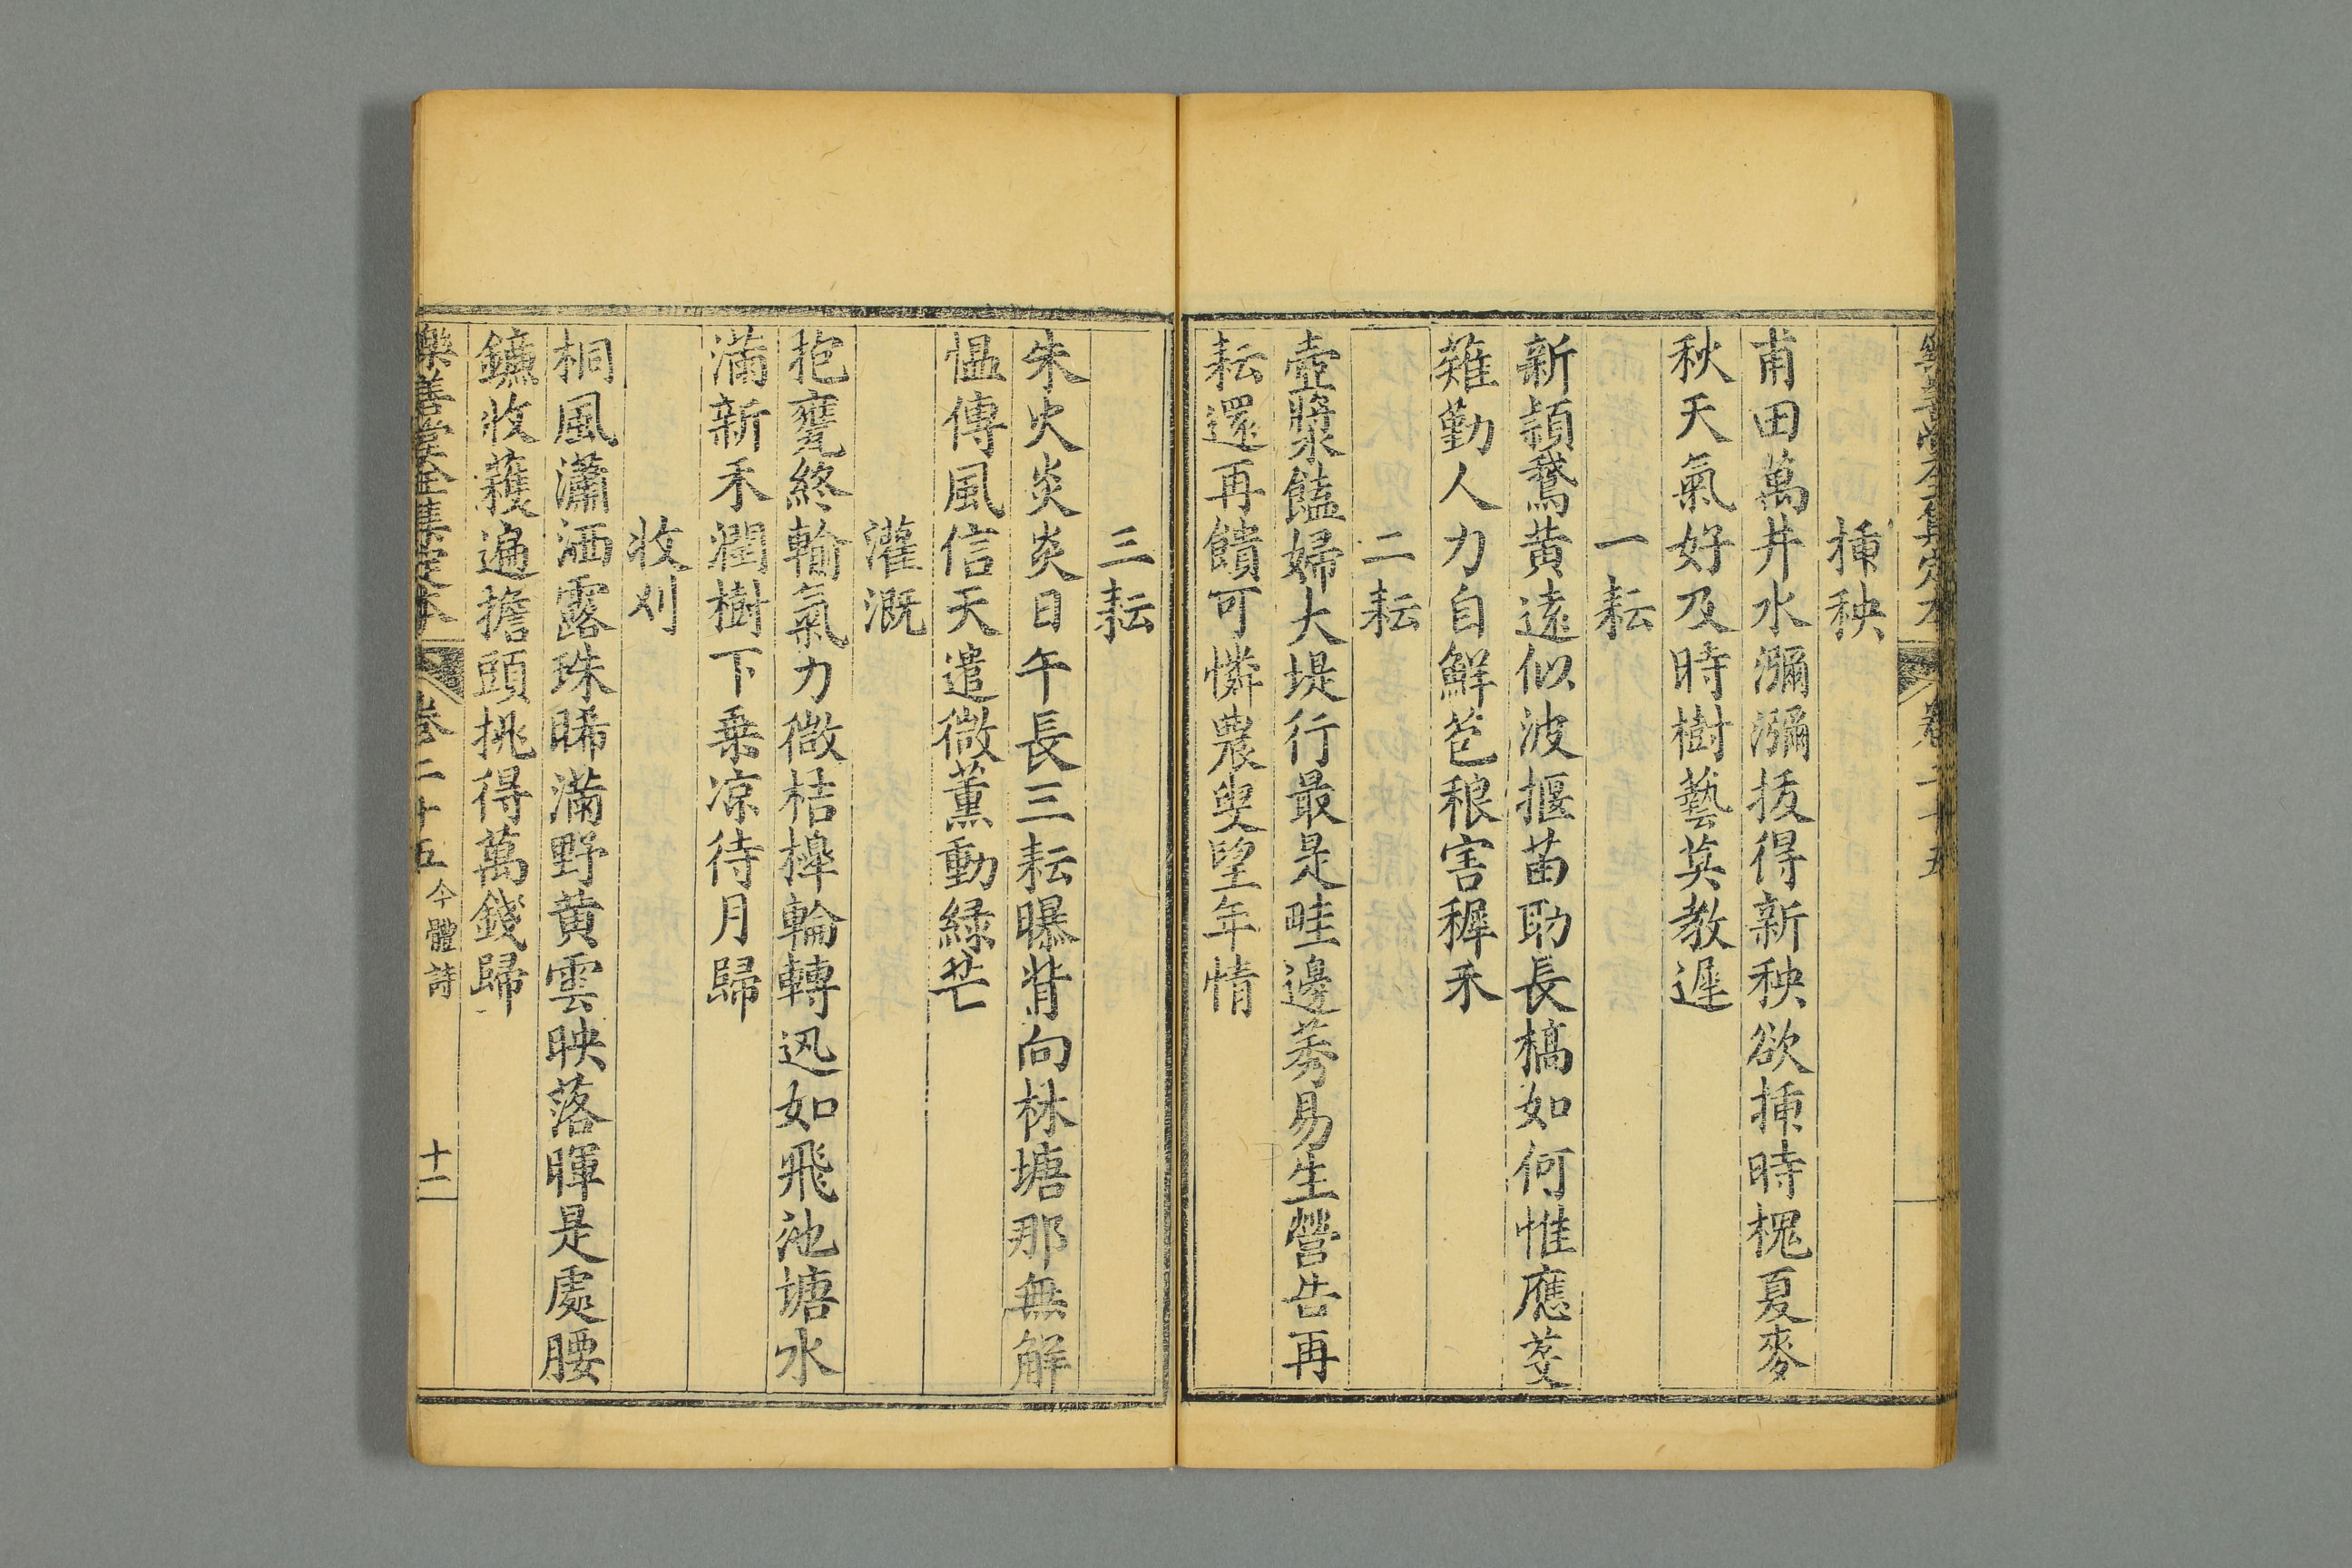 樂善堂全集定本 卷二十五
挿秧
甫田萬井水瀰瀰拔得新秧欲挿時槐夏麥
秋天氣好及時樹藝莫教遲
一耘
新穎鵞黄遠似波揠苗助長槁如何惟應芟
薙勤人力自鮮苞稂害稺禾
二耘
壺漿饁婦大堤行最是畦邊莠易生營告再
耘還再饋可憐農叟望年情
三耘
朱火炎炎日午長三耘曝背向林塘那無解
愠傳風信天遣微薰動緑芒
灌溉
抱甕終輸氣力微桔橰輪轉迅如飛池塘水
滿新禾潤樹下乗凉待月歸
收刈
桐風瀟洒露珠晞滿野黄雲映落暉是處腰
鐮收穫遍擔頭挑得萬錢歸
樂善堂全集定本 卷二十五 今體詩 十二